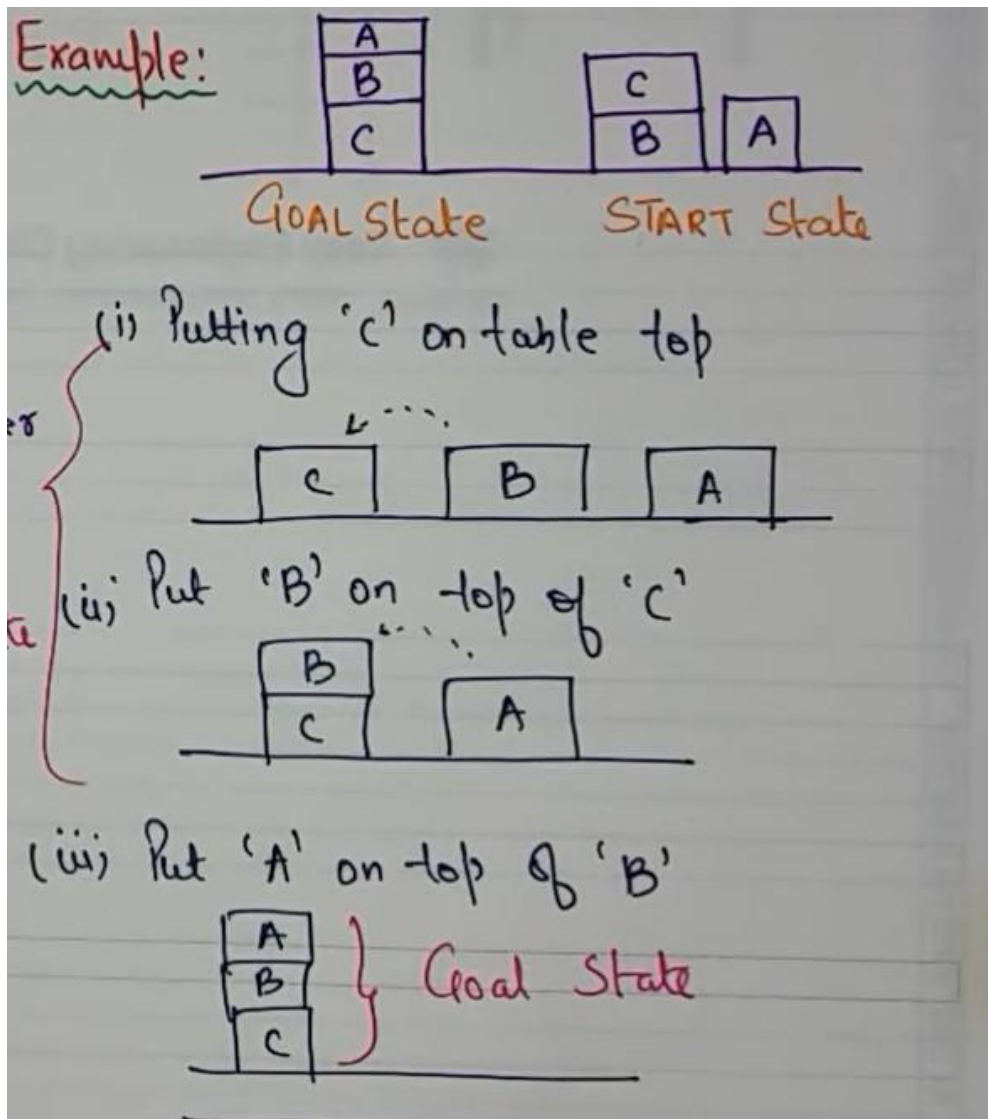 Example:
A
B
C
C
B
A
GOAL State
START State
(i) Putting 'C' on table top
C
B
A
(ii) Put 'B' on top of 'C'
B
C
A
(iii) Put 'A' on top of 'B'
A
B
C
Goal State